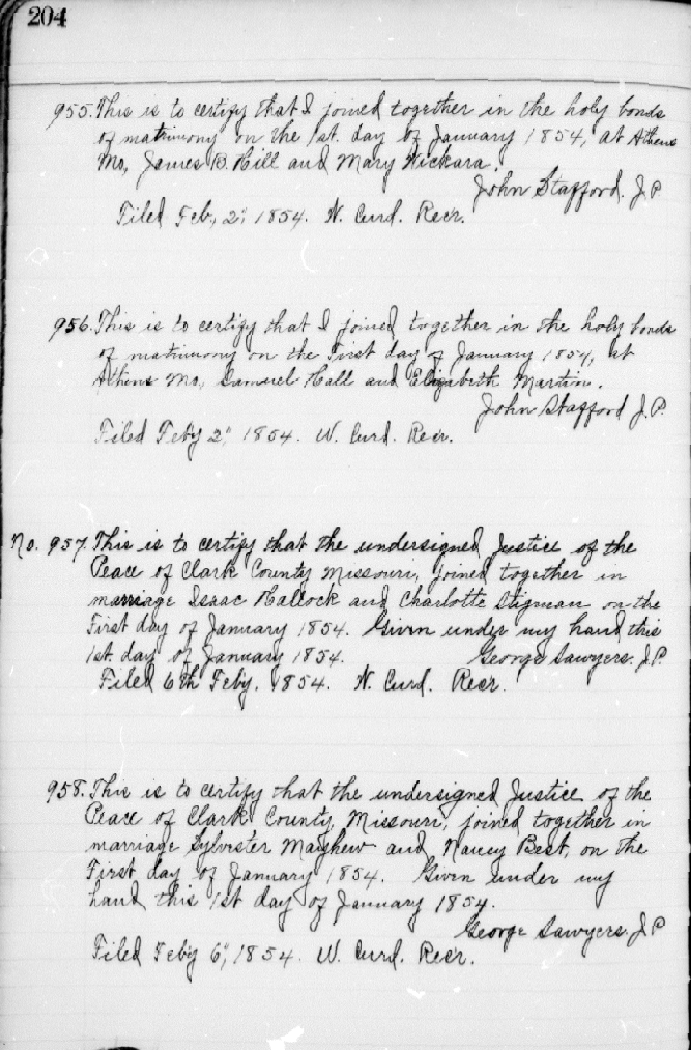 204
955. This is to certify that I joined together in the holy bonds
of matrimony on the 1st. day of January 1854, at Athens
Mo, James B. Hill and Mary Wickara.
John Stafford. J.P.
Filed Feb, 2", 1854. N. Curd. Recr.
956. This is to certify that I joined together in the holy bonds
of matrimony on the First day of January 1854, at
Athens Mo, Samerel Hall and Elizabeth Martin.
John Stafford J.P.
Filed Feb'y 2", 1854. W. Curd. Recr.
No. 957. This is to certify that the undersigned Justice of the
Peace of Clark County Missouri, joined together in
marriage Isaac Hallock and Charlotte Stigman on the
First day of January 1854. Given under my hand this
1st. day of January 1854. George Sawyers. J.P.
Filed 6th Feby. 1854. N. Curd. Recr.
958. This is to certify that the undersigned Justice of the
Peace of Clark County, Missouri, joined together in
marriage Sylvester Mayhew and Nancy Best, on the
First day of January 1854. Given under my
hand this 1st day of January 1854.
George Sawyers. J.P
Filed Feb'y 6", 1854. W. Curd. Recr.